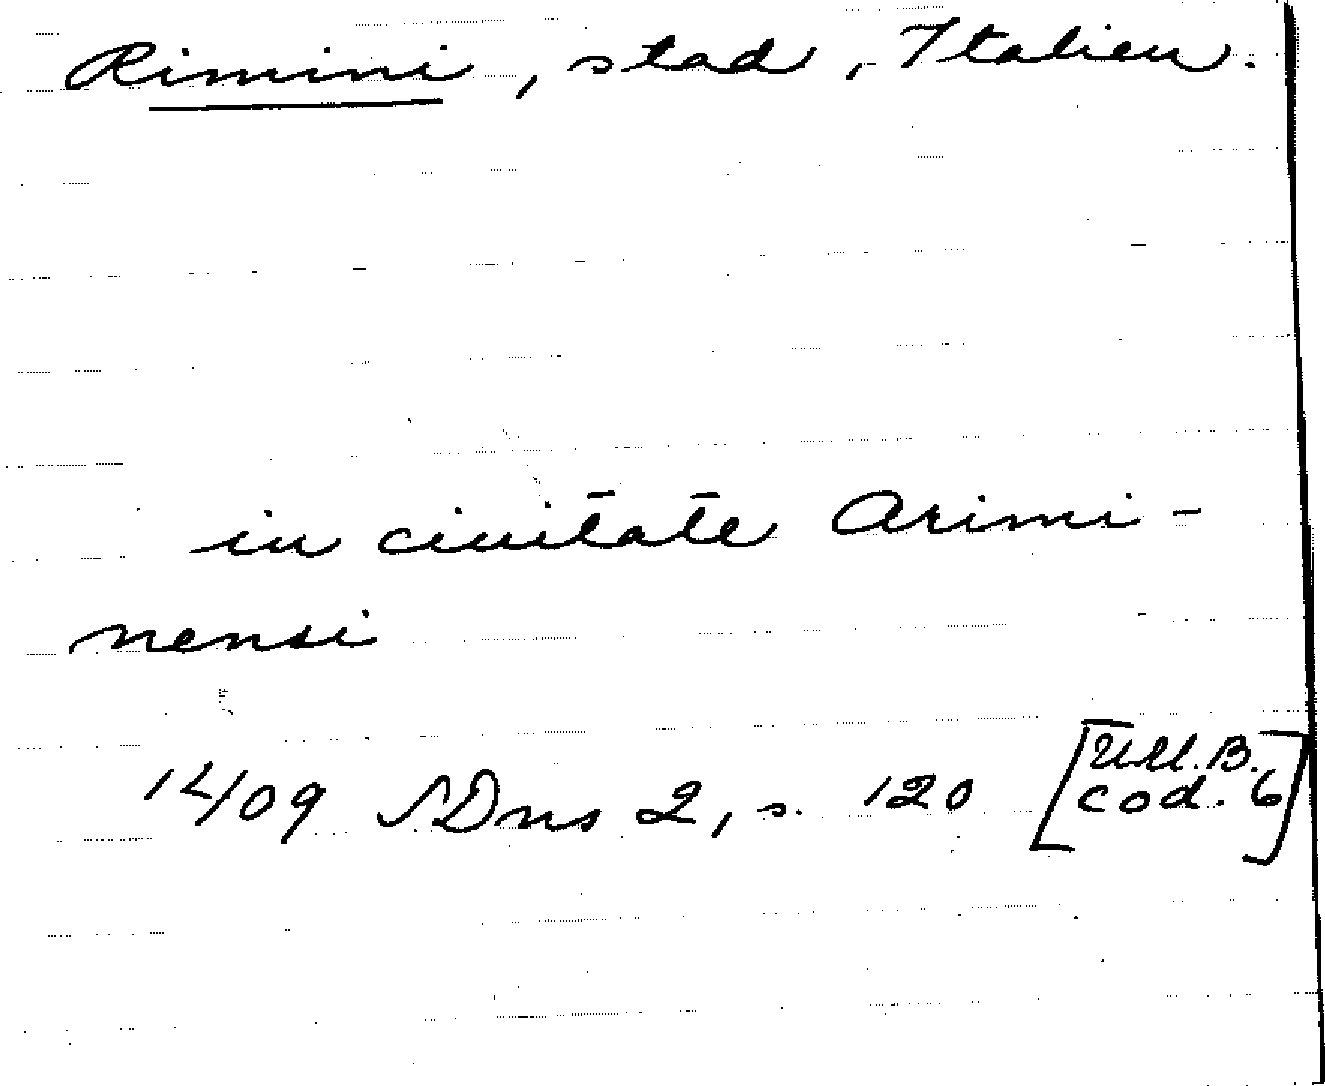 Rimini, stad, Italien.
in ciuitate Arimi-
nensi
1409 SDns 2, s. 120 [U.U.B.
cod. 6]